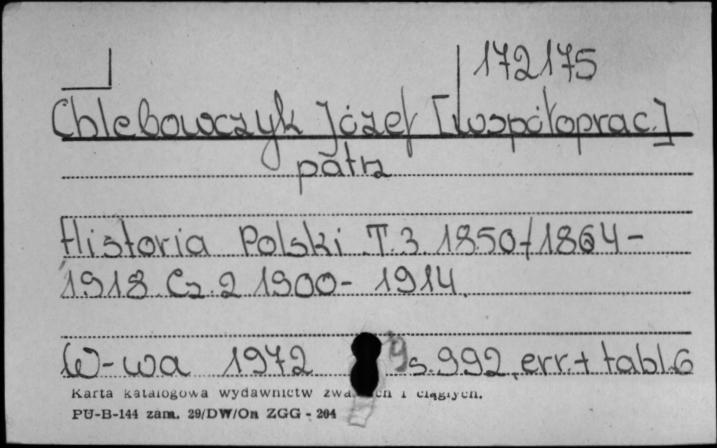 172175
Chlebowczyk Józef [współoprac.]
patrz
Historia Polski T.3 1850/1864-
1918 Cz.2 1900-1914.
W-wa 1972 s.992, err.+tabl.6
Karta katalogowa wydawnictw i ciągłych.
PU-B-144 zam. 29/DW/On ZGG - 204